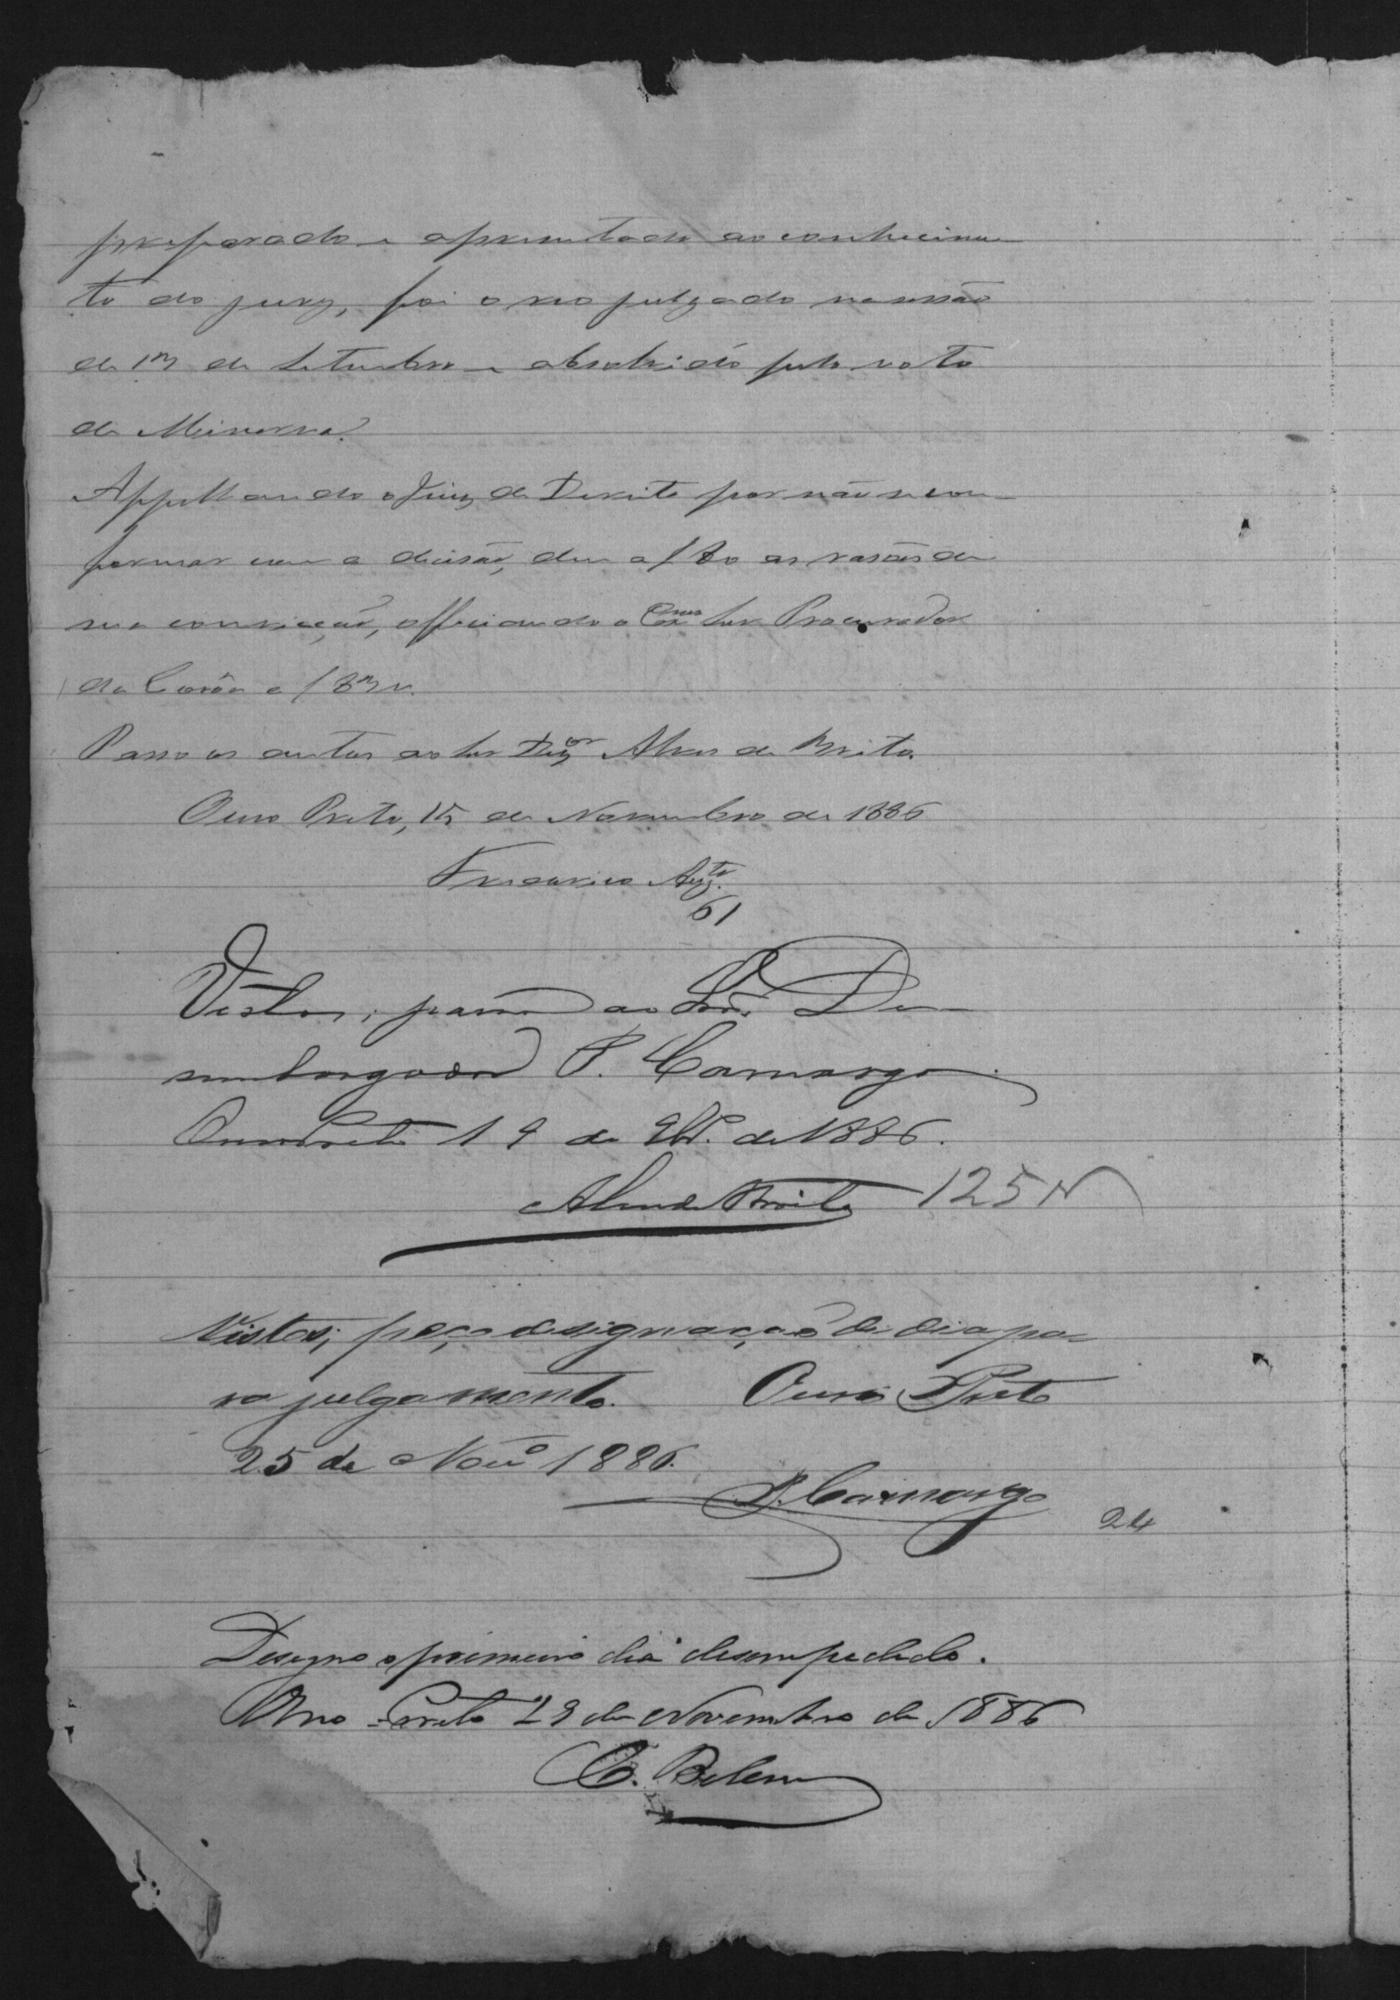 preparado e apresentado ao conhecimen
to do jury, foi o reo julgado na sessão
de 17 de Setembro e absolvido pelo voto
de Minerva.
Appellando o Juiz de Direito por não se con-
formar com a decisão, deu a f 80 as rasões de
sua convicção, officiando o Exmo Snr Procurador
da Corôa a f 87 v.
Passo os autos ao Snr Dezor Alves de Brito.
Ouro Preto, 15 de Novembro de 1886
Frederico Augto
61
Vistos, passo ao Snr. De-
sembargador P. Camargo.
Ouro Preto 19 de 9br. de 1886.
Alves de Brito 125
Vistos; peço designação de dia pa-
ra julgamento. Ouro Preto
25 de Novo 1886.
P. Camargo
24
Designo o primeiro dia desempedido.
Ouro Preto 29 de Novembro de 1886
Belem